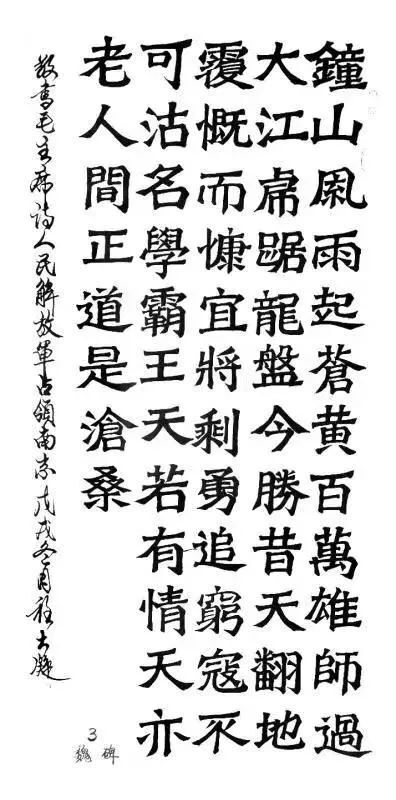 鐘山風雨起蒼黃百萬雄師過
大江虎踞龍盤今勝昔天翻地
覆慨而慷宜將剩勇追窮寇不
可沽名學霸王天若有情天亦
老人間正道是滄桑
敬書毛主席诗人民解放軍占領南京戊戌冬月
3
魏碑